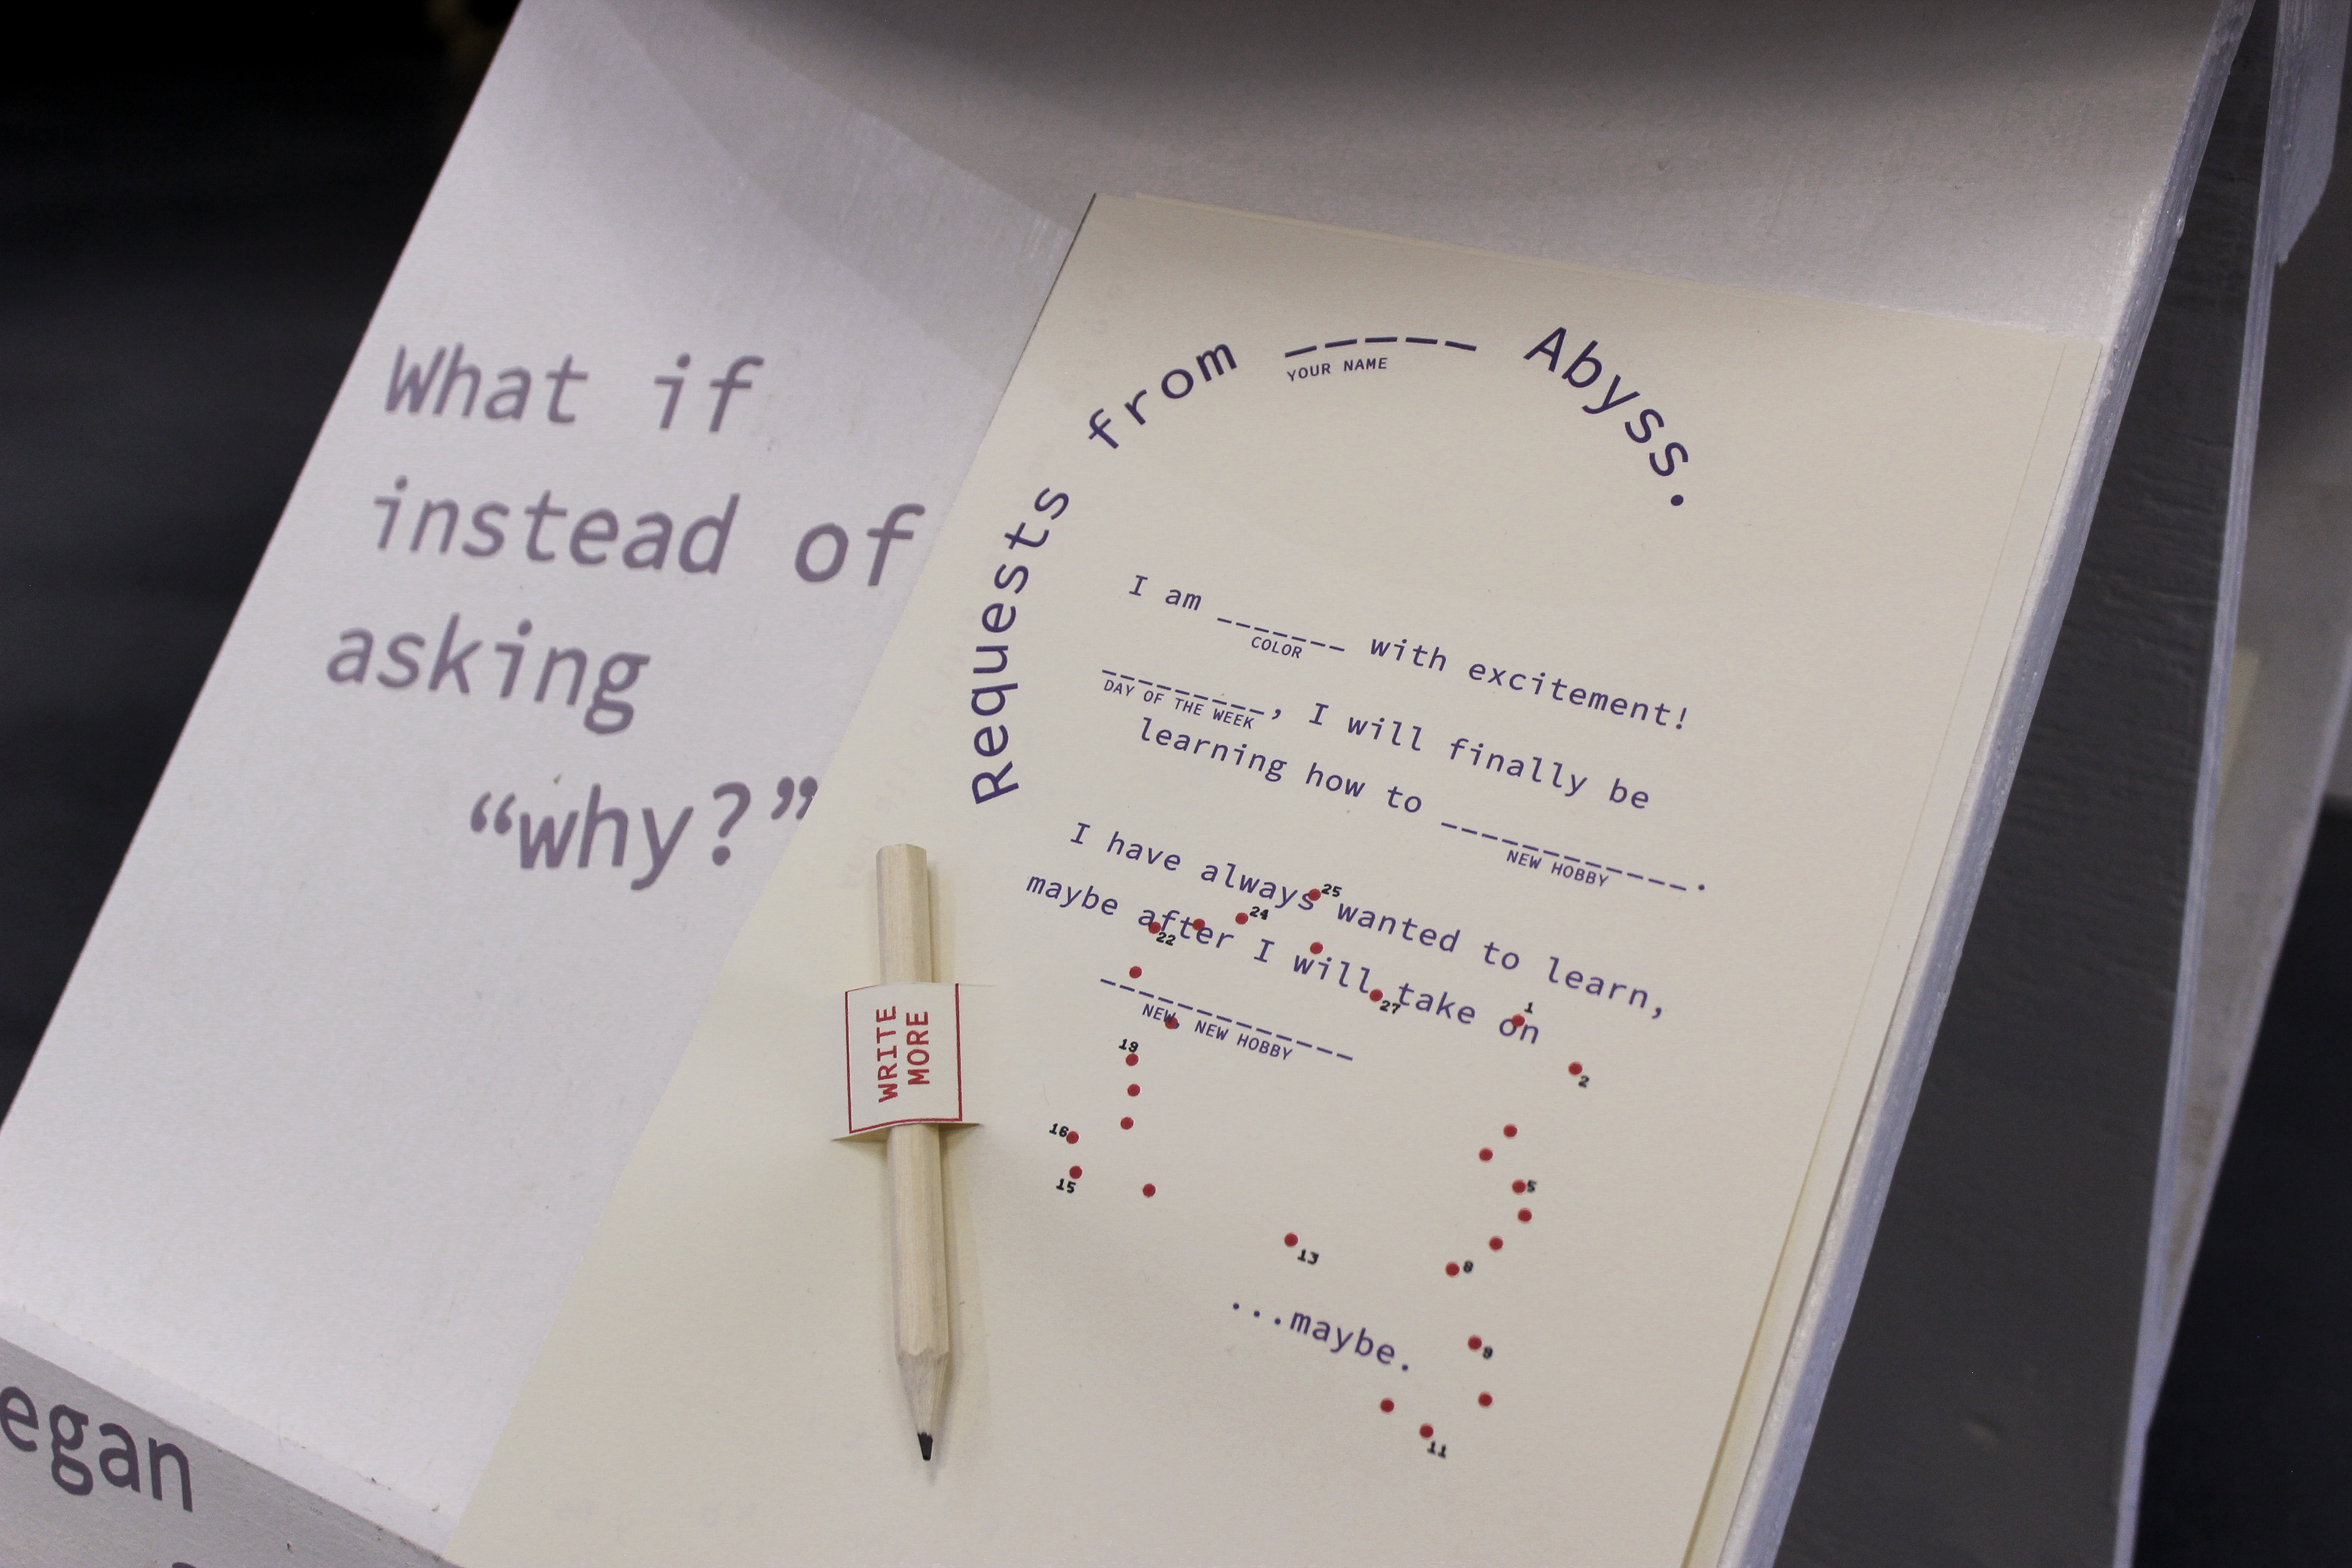 What if
instead of
asking
“why?”
egan
Requests from ______ Abyss.
YOUR NAME
I am _______ with excitement!
COLOR
_________, I will finally be
DAY OF THE WEEK
learning how to _____________.
NEW HOBBY
I have always wanted to learn,
maybe after I will take on
_____________
NEW, NEW HOBBY
...maybe.
WRITE
MORE
25
24
22
27
1
2
19
16
15
5
8
13
9
11